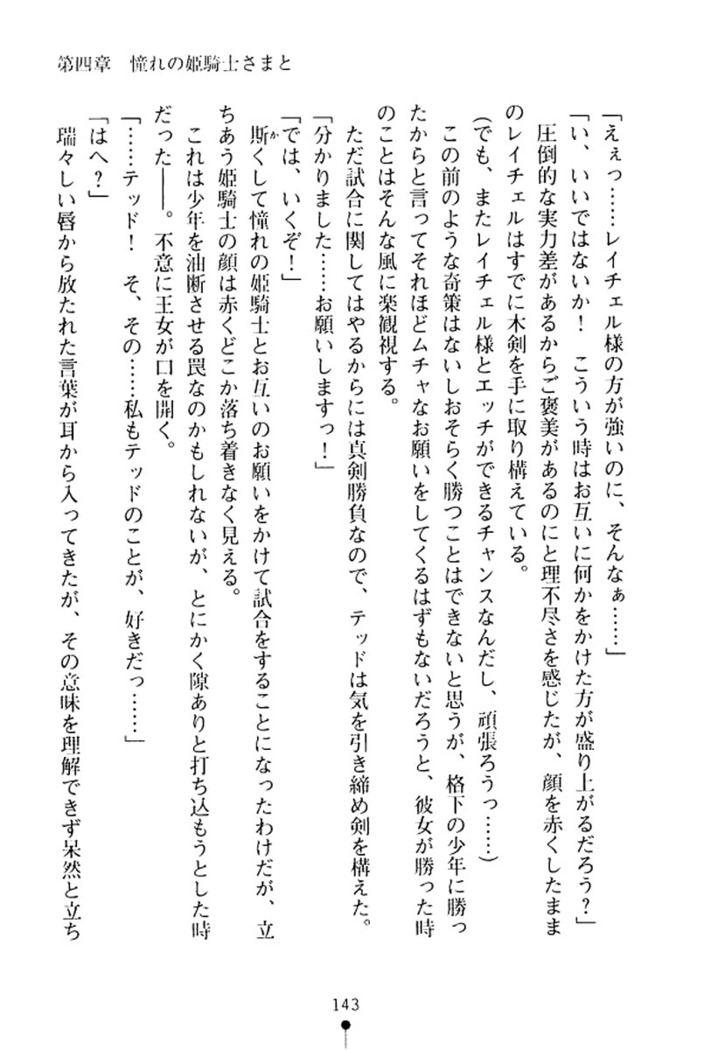 第四章　憧れの姫騎士さまと
「えぇっ……レイチェル様の方が強いのに、そんなぁ……」
「い、いいではないか！　こういう時はお互いに何かをかけた方が盛り上がるだろう？」
　圧倒的な実力差があるからご褒美があるのにと理不尽さを感じたが、顔を赤くしたまま
のレイチェルはすでに木剣を手に取り構えている。
（でも、またレイチェル様とエッチができるチャンスなんだし、頑張ろうっ……）
　この前のような奇策はないしおそらく勝つことはできないと思うが、格下の少年に勝っ
たからと言ってそれほどムチャなお願いをしてくるはずもないだろうと、彼女が勝った時
のことはそんな風に楽観視する。
　ただ試合に関してはやるからには真剣勝負なので、テッドは気を引き締め剣を構えた。
「分かりました……お願いしますっ！」
「では、いくぞ！」
　斯くして憧れの姫騎士とお互いのお願いをかけて試合をすることになったわけだが、立
か
ちあう姫騎士の顔は赤くどこか落ち着きなく見える。
　これは少年を油断させる罠なのかもしれないが、とにかく隙ありと打ち込もうとした時
だった――。不意に王女が口を開く。
「……テッド！　そ、その……私もテッドのことが、好きだっ……」
「はへ？」
　瑞々しい唇から放たれた言葉が耳から入ってきたが、その意味を理解できず呆然と立ち
143